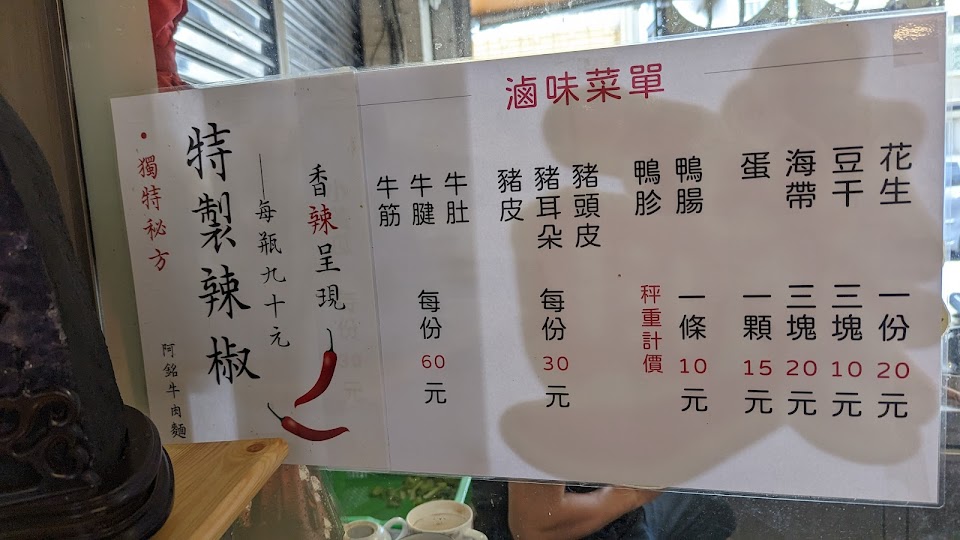 滷味菜單
花生 一份20元
豆干 三塊10元
海帶 三塊20元
蛋 一顆15元
鴨腸 一條10元
鴨胗 秤重計價
豬頭皮
豬耳朵 每份30元
豬皮
牛肚
牛腱 每份60元
牛筋
香辣呈現
—每瓶九十元
特製辣椒
•獨特秘方
阿銘牛肉麵